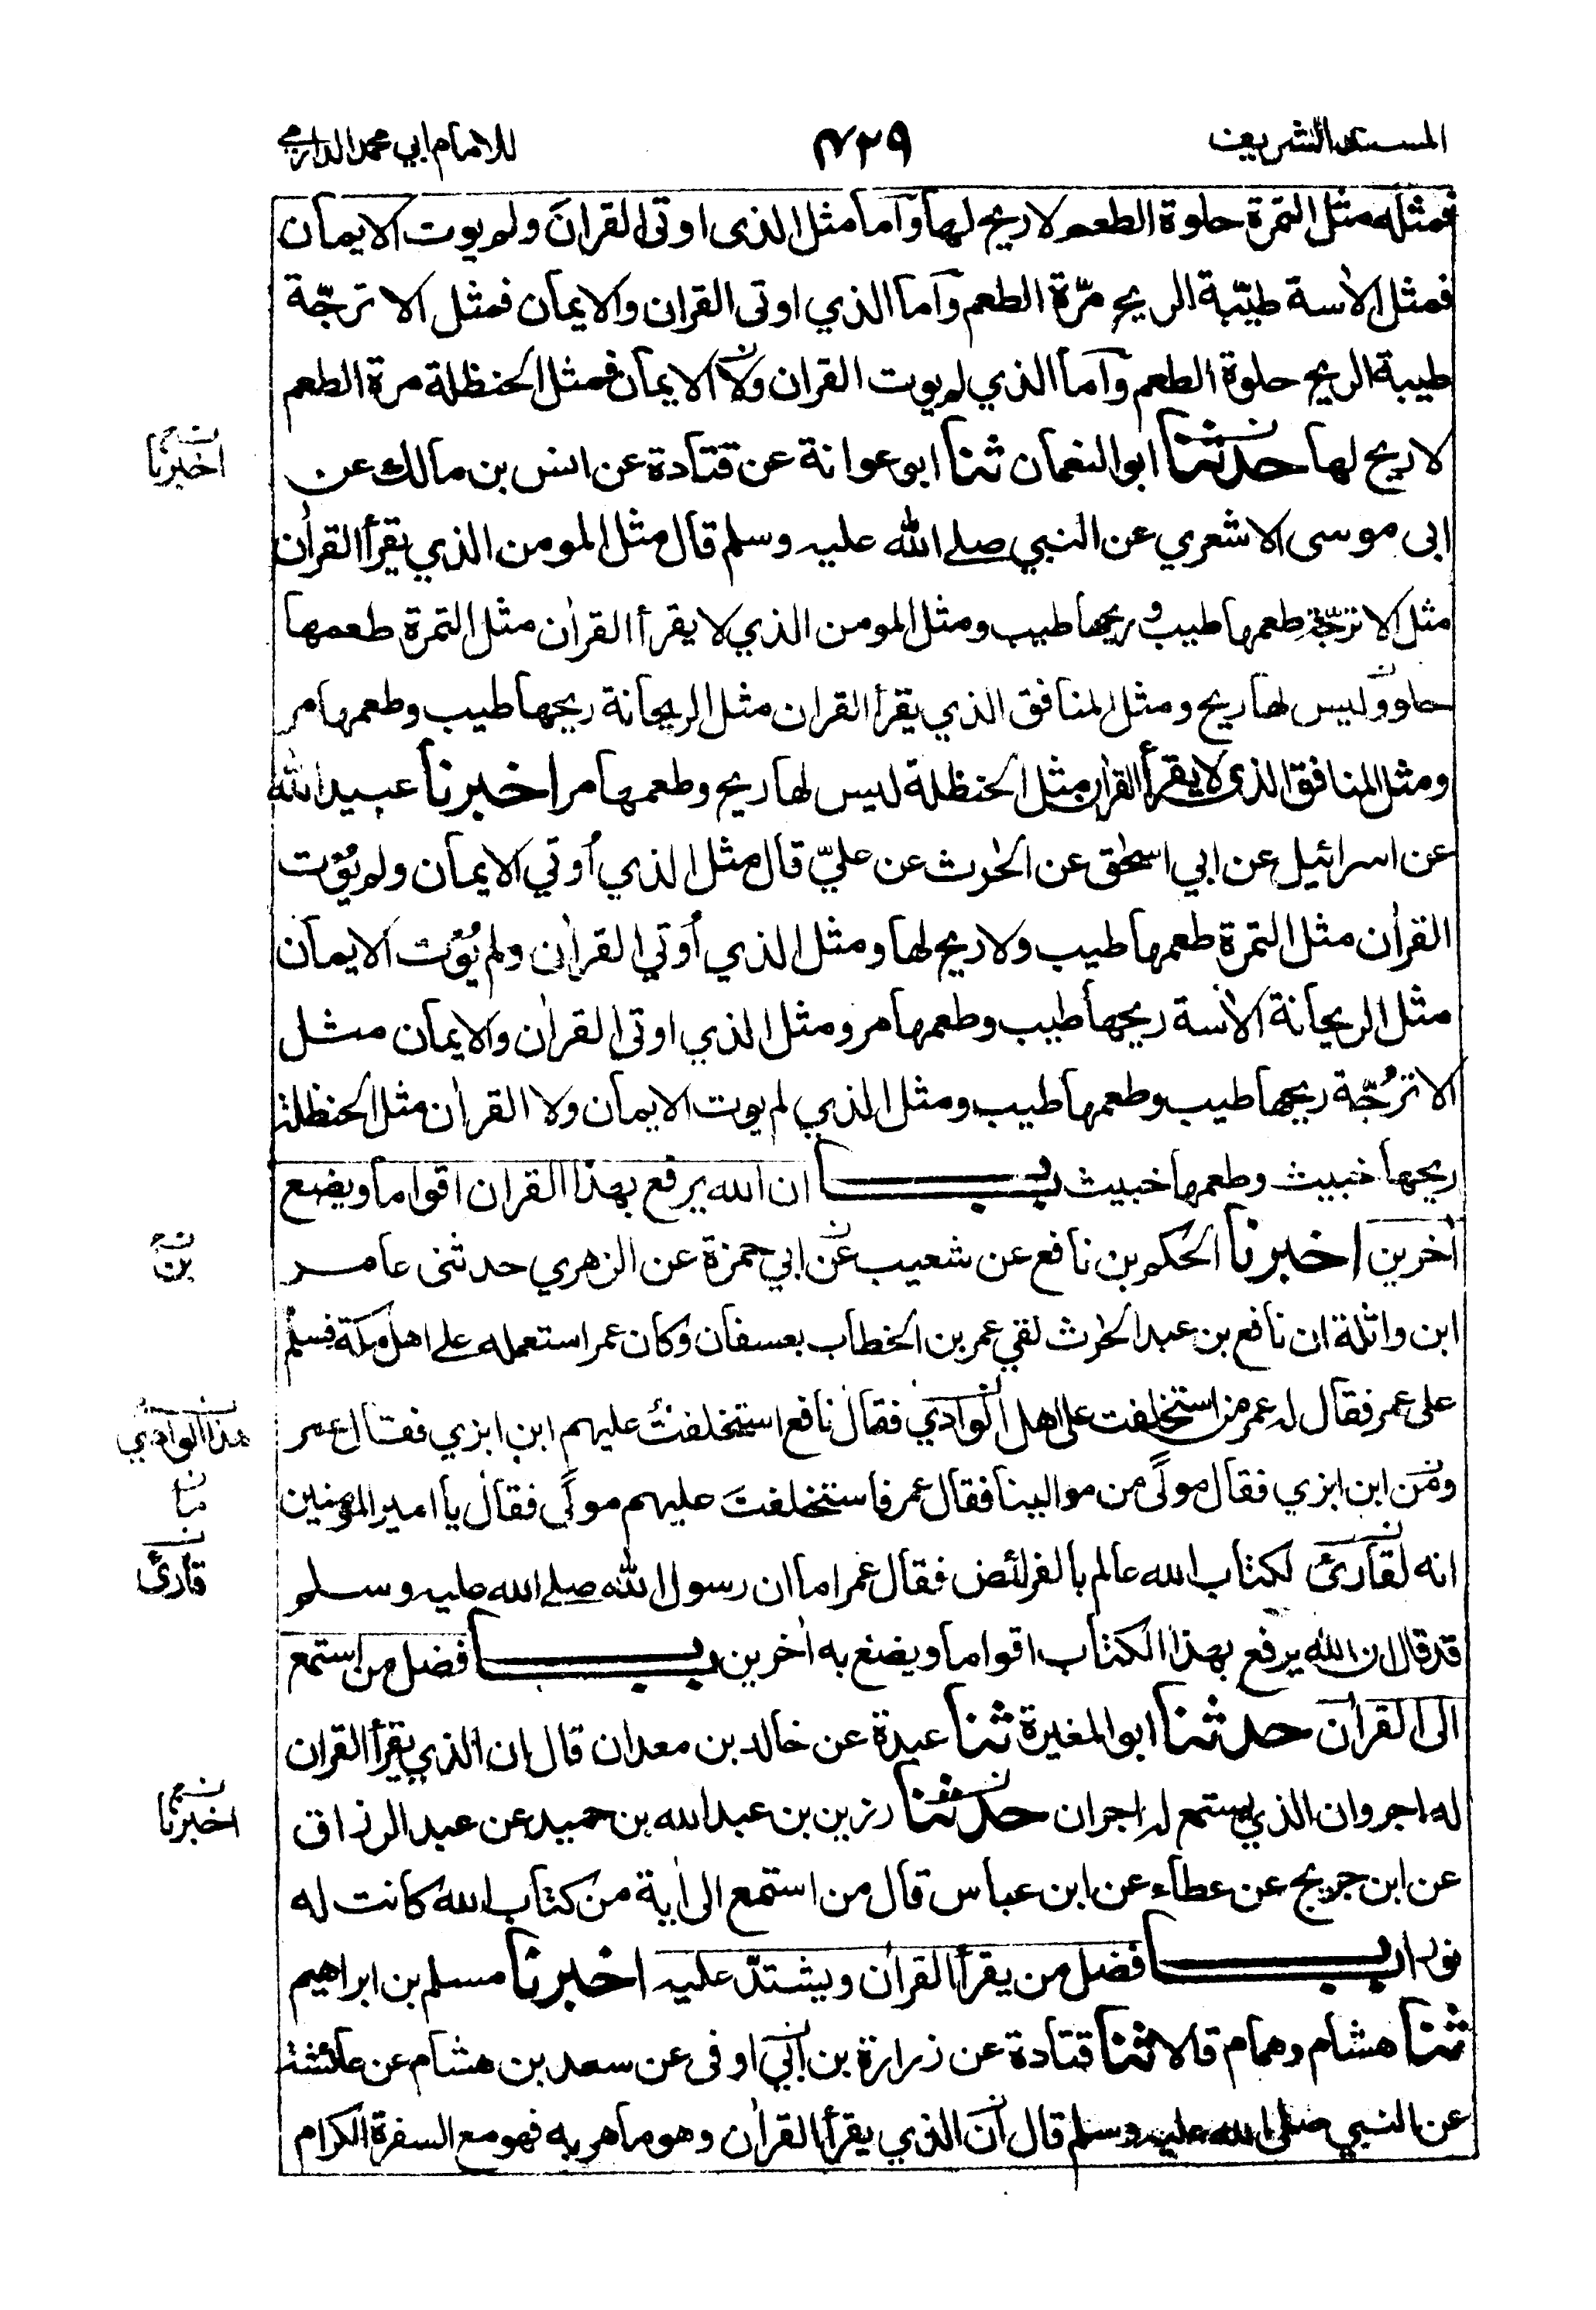 المسند الشريف ٤٢٩ للامام ابي محمد الدارمي
فمثله مثل التمرة حلوة الطعم لا ريح لها وآما مثل الذى اوتى القرانَ ولم يوت الايمان
فمثل الاٰسة طيّبة الريح مرّة الطعم وآما الذي اوتى القران والايمان فمثل الاترجّة
طيبة الريح حلوة الطعم وآما الذي لم يوت القران ولا الايمان فمثل الحنظلة مرة الطعم
لا ريح لها حدثنا ابو النعمان ثنا ابو عوانة عن قتادة عن انس بن مالك عن
اخبرنا
ابى موسى الاشعري عن النبي صلے الله عليه وسلم قال مثل المومن الذي يقرأ القراٰن
مثل الاترجّة طعمها طيب وريحها طيب ومثل المومن الذي لا يقرأ القراٰن مثل التمرة طعمها
حلو وليس لها ريح ومثل المنافق الذي يقرأ القران مثل الريحانة ريحها طيب وطعمها مر
ومثل المنافق الذى لا يقرأ القراٰن مثل الحنظلة ليس لها ريح وطعمها مر اخبرنا عبيد الله
عن اسرائيل عن ابي اسحٰق عن الحٰرث عن عليّ قال مثل الذي اُوتي الايمان ولم يُؤت
القراٰن مثل التمرة طعمها طيب ولا ريح لها ومثل الذي اُوتي القراٰن ولم يُؤت الايمان
مثل الريحانة الاٰسة ريحها طيب وطعمها مر ومثل الذي اوتى القراٰن والايمان مثل
الاترُجّة ريحها طيب وطعمها طيب ومثل الذي لم يوت الايمان ولا القراٰن مثل الحنظلة
ريحها خبيث وطعمها خبيث باب ان الله يرفع بهذا القران اقواما ويضع
اٰخرين اخبرنا الحكم بن نافع عن شعيب عن ابي حمزة عن الزهري حدثنى عامر
بن
ابن واثلة ان نافع بن عبد الحٰرث لقي عمر بن الخطاب بعسفان وكان عمر استعمله على اهل مكة فسلم
على عمر فقال له عمر من استخلفت على اهل الوادي فقال نافع استخلفتُ عليهم ابن ابزي فقال عمر
هذا الوادي
ومَن ابن ابزي فقال مولًى من موالينا فقال عمر فاستخلفتَ عليهم مولًى فقال يا امير المومنين
انه لقارئ لكتاب الله عالم بالفرائض فقال عمر اما ان رسول الله صلے الله عليه وسلم
قارئ
قد قال ان الله يرفع بهذا الكتاب اقواما ويضع به اٰخرين باب فضل من استمع
الى القراٰن حدثنا ابو المغيرة ثنا عبدة عن خالد بن معدان قال ان الذي يقرأ القران
له اجر وان الذي يستمع له اجران حدثنا رزين بن عبد الله بن حميد عن عبد الرزاق
اخبرنا
عن ابن جريج عن عطاء عن ابن عباس قال من استمع الى اٰية من كتاب الله كانت له
نورا باب فضل من يقرأ القراٰن ويشتدّ عليه اخبرنا مسلم بن ابراهيم
ثنا هشام وهمام قالا ثنا قتادة عن زرارة بن ابي اوفى عن سعد بن هشام عن عائشة
عن النبي صلى الله عليه وسلم قال ان الذي يقرأ القراٰن وهو ماهر به فهو مع السفرة الكرام